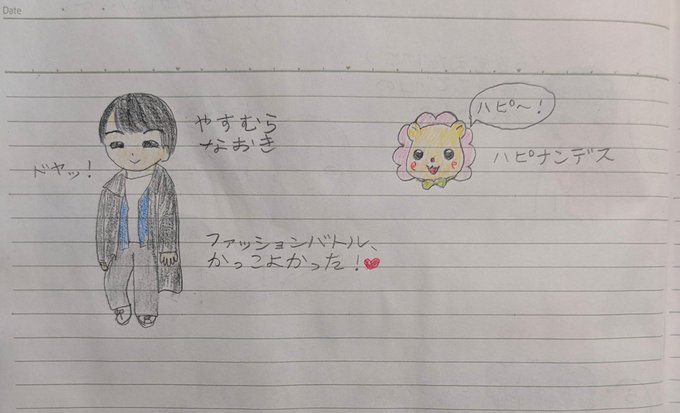 Date
やすむら
なおき
ドヤッ!
ファッションバトル、
かっこよかった!
ハピ〜!
ハピナンデス